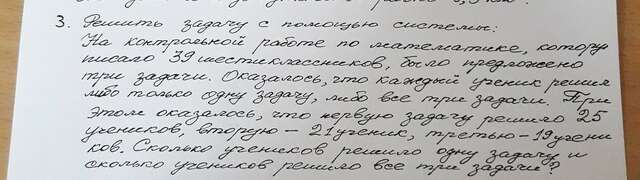 3. Решить задачу с помощью системы:
На контрольной работе по математике, котору
писало 39 шестиклассников, было предложено
три задачи. Оказалось, что каждый ученик решил
либо только одну задачу, либо все три задачи. При
этом оказалось, что первую задачу решило 25
учеников, вторую – 21 ученик, третью – 19 учени
ков. Сколько учеников решило одну задачу и
сколько учеников решило все три задачи?